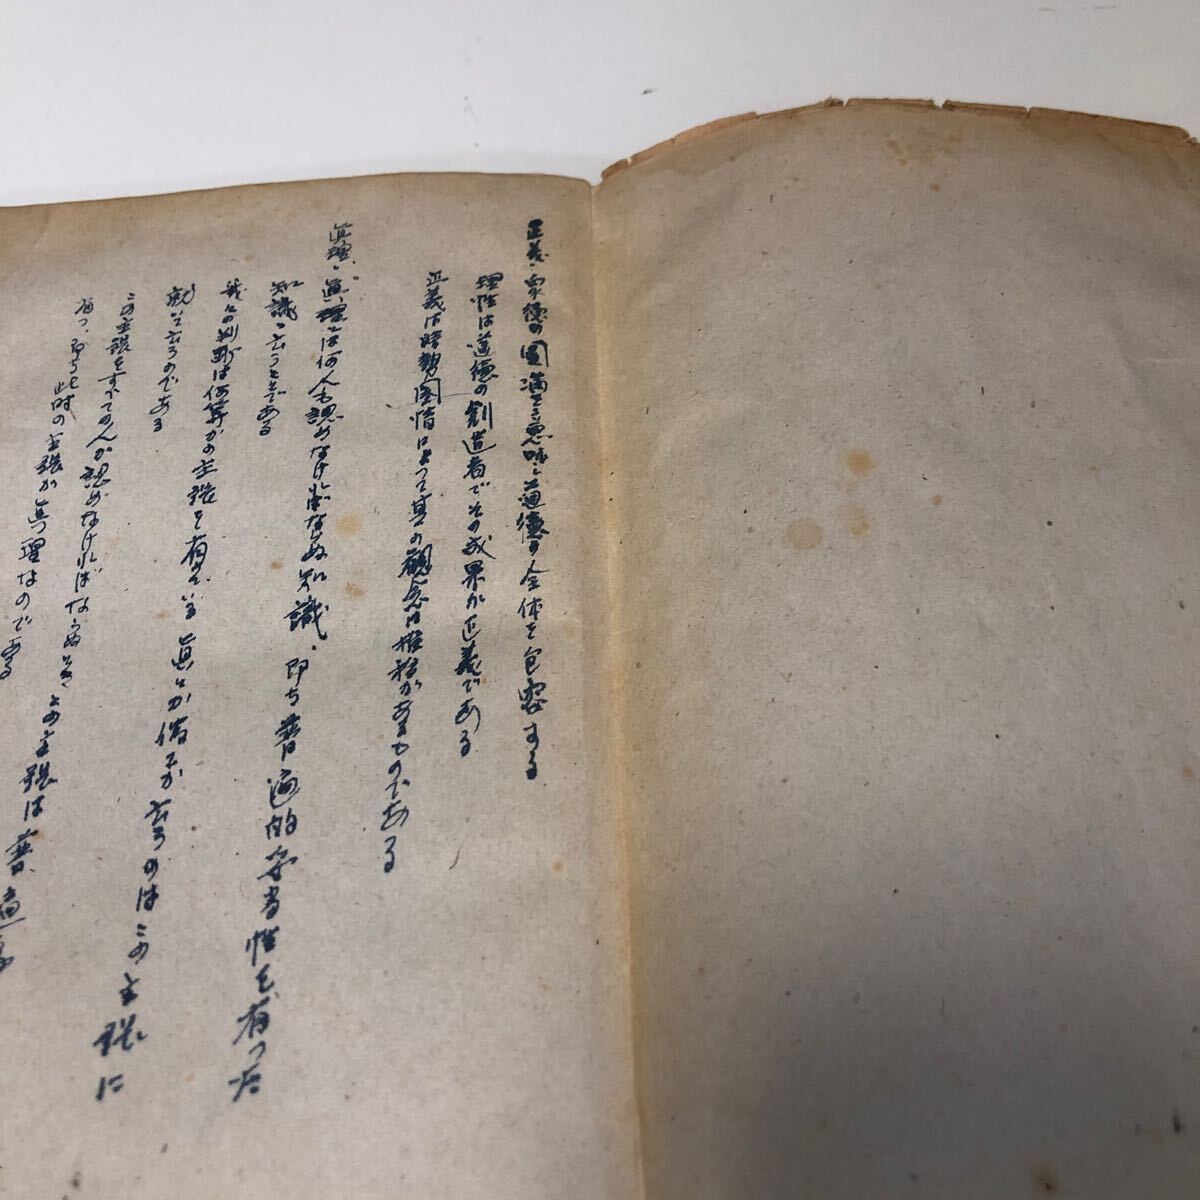 正義、衆徳の圓満を意味し道徳の全体を包容する
理性は道徳の創造者でその成果が正義である
正義は時勢国情によって其の観念は推移があるものである
眞理、眞理とは何人も認めなければならぬ知識、即ち普遍的妥当性を有った
知識を云うのである
我々の判断は何等かの主張を有ている 眞とか偽とか云うのはこの主張に
就いて云うのである
この主張をすべての人が認めなければならぬとき この主張は普遍
有つ、即ち此時の主張が眞理なのである